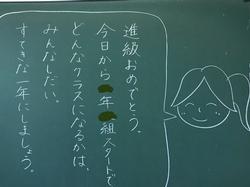 進級おめでとう。
今日から 年 組スタートです
どんなクラスになるかは、
みんなしだい。
すてきな一年にしましょう。